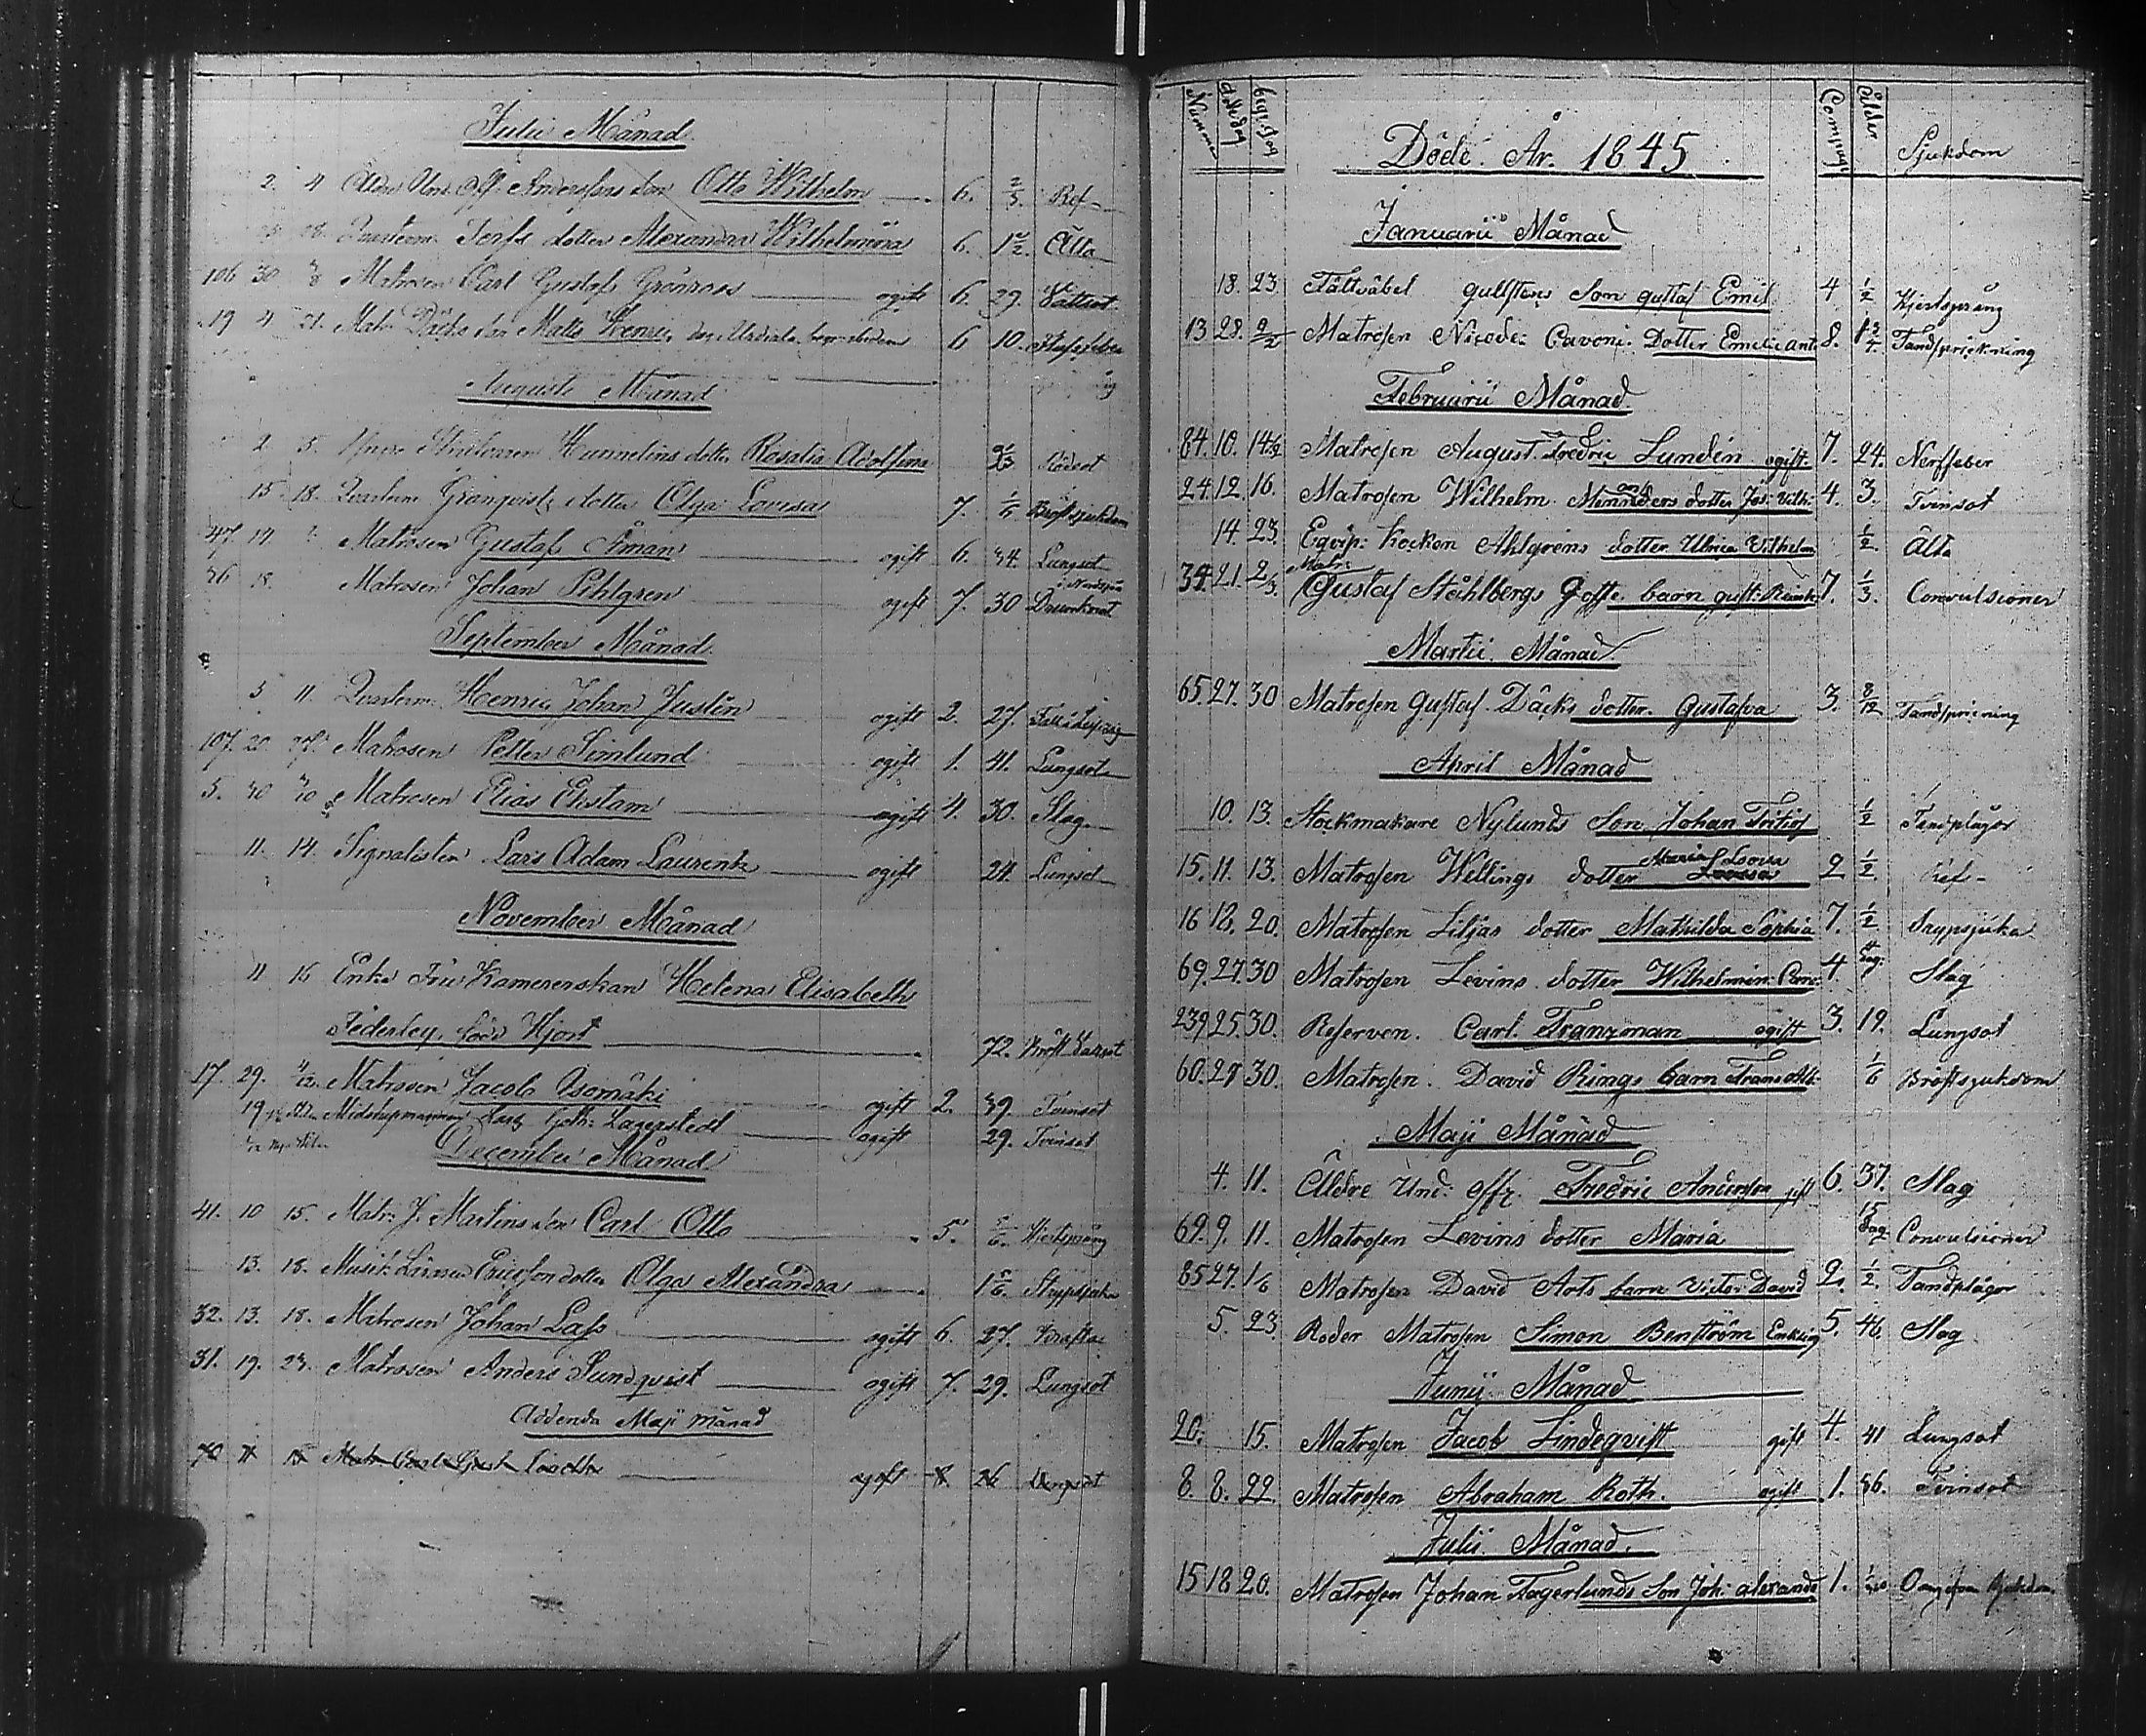 Julii Månad
2. 4 Äldre Und. Off. Anderssons son Otto Wilhelm 6. 2/3. Ref
28. Quarterm. dotter Alexandra Wilhelmina 6 1 1/2. Älta
106 30 Matrosen Carl Gustaf Grönroos ogift 6. 29. Vattsot
19 4 21. Matr. Däcks son Matts Henric, 6 10.
Augusti Månad
2 5. Hannelins dotter Rosalia Adolfina Rödsot
15. 18. Quarterm. Granqvists dotter Olga Lovisa 7. Bröstsjukdom
47. 14 Matrosen Gustaf Åman ogift 6. 34. Lungsot
36 18. Matrosen Johan Pihlgren ogift 7. 30 Drunknat
September Månad
5 11. Quarterm. Henric Johan Justén ogift 2. 27.
107. 20. Matrosen Petter Simlund ogift 1. 41. Lungsot
5. 30 Matrosen Elias Ekstam ogift 4. 30. Slag
11. 14. Signalisten Lars Adam Laurentz ogift 24. Lungsot
November Månad
11 16 Enke Fru Kamererskan Helena Elisabeth
Federley, född Hjort 72. Bröst
17. 29. 4/12. Matrosen Jacob Isomäki ogift 2. 39. Tvinsot
19 Midshipmannen Lagerstedt ogift 29. Tvinsot
December Månad
41. 10 15. Matr. J. Martins son Carl Otto 5. Hjertsprång
13. 18. Musik. Ericsson dotter Olga Alexandra 1 Strypsjuka
32. 13. 18. Matrosen Johan Lass ogift 6. 27.
31. 19. 23. Matrosen Anders Sundqvist ogift 7. 29. Lungsot
Addenda Maji Månad
70 11 15 Matr. Carl Gust. ogift 8. 26 Lungsot
Nummer dödsdag begr. dag Compagn Ålder Sjukdom
Döde År 1845
Januarii Månad
18. 23. Fältväbel Gullstens Son Gustaf Emil 4 1/2 Hjertsprång
13 28. 2/2 Matrosen Nicode: Cavoni Dotter Emelie Ant. 8. Tandsprickning
Februarii Månad
84. 10. 14/2 Matrosen August Fredric Lundén ogift 7. 24. Nerffeber
24. 12. 16. Matrosen Wilhelm dotter Jos: Vilh: 4. 3. Tvinsot
14. 23. Eqvip: Kocken Ahlgrens dotter Ulrica Vilhelm 1/2. Älta
34. 21. 2/3. Matr: Gustaf Ståhlbergs barn 7. 1/3. Convulsioner
Martii Månad
65. 27. 30 Matrosen Gustaf Däcks dotter Gustafva 3. 8/12 Tandspricning
April Månad
10. 13. Stockmakare Nylunds Son Johan Fritiof 1/2 Tandplågor
15. 11. 13. Matrosen Wellings dotter Maria Lovisa 2 1/2. Ref
16 18. 20. Matrosen Liljas dotter Mathilda Sophia 7. 1/2. Strypsjuka
69. 27. 30 Matrosen Levins dotter Wilhelmin: Caro: 4 dag. Slag
239 25. 30. Reserven. Carl Franzman ogift 3. 19. Lungsot
60. 27 30. Matrosen David Rings barn Frans Alb: 1/6 Bröstsjukdom
Maji Månad
4. 11. Äldre Und: offr. Fredric Anderson gift 6. 37. Slag
69. 9. 11. Matrosen Levins dotter Maria 15 dag Convulsioner
85 27. 1/6 Matrosen David Arts barn Victor David 2. 1/2. Tandplågor
5. 23. Roder Matrosen Simon Benström Enkling 5. 46. Slag
Junii Månad
20. 15. Matrosen Jacob Lindeqvist gift 4. 41 Lungsot
8. 8. 22. Matrosen Abraham Roth. ogift 1. 56. Tvinsot
Julii Månad.
15 18 20. Matrosen Johan Fagerlunds Son Joh: Alexande 1. Sjukdom